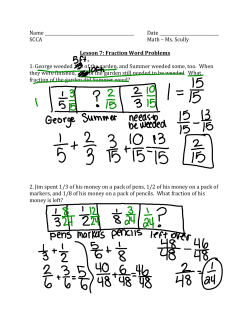 Name Date
SCCA Math – Ms. Scully
Lesson 7: Fraction Word Problems
1. George weeded 1/5 of the garden, and Summer weeded some, too. When
they were finished, 2/3 of the garden still needed to be weeded. What
fraction of the garden did Summer weed?
1 1/5 3/15 ? 2/15 2/3 10/15 1 = 15/15
George Summer needs to be weeded
15/15 - 13/15
1/5 + 2/3 3/15 + 10/15 = 13/15
2/15
2. Jim spent 1/3 of his money on a pack of pens, 1/2 of his money on a pack of
markers, and 1/8 of his money on a pack of pencils. What fraction of his
money is left?
1/3 8/24 1/2 12/24 1/8 3/24 1/24 ?
pens markers pencils left over
1/3 + 1/2 5/6 + 1/8 48/48 - 46/48
2/6 + 3/6 = 5/6 40/48 + 6/48 = 46/48 2/48 = 1/24